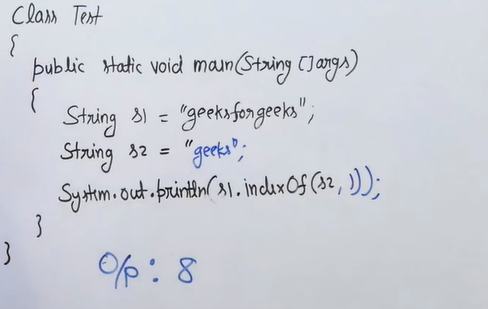 Class Test
{
public static void main(String []args)
{
String s1 = "geeksforgeeks";
String s2 = "geeks";
System.out.println(s1.indexOf(s2, 1));
}
}
O/p: 8